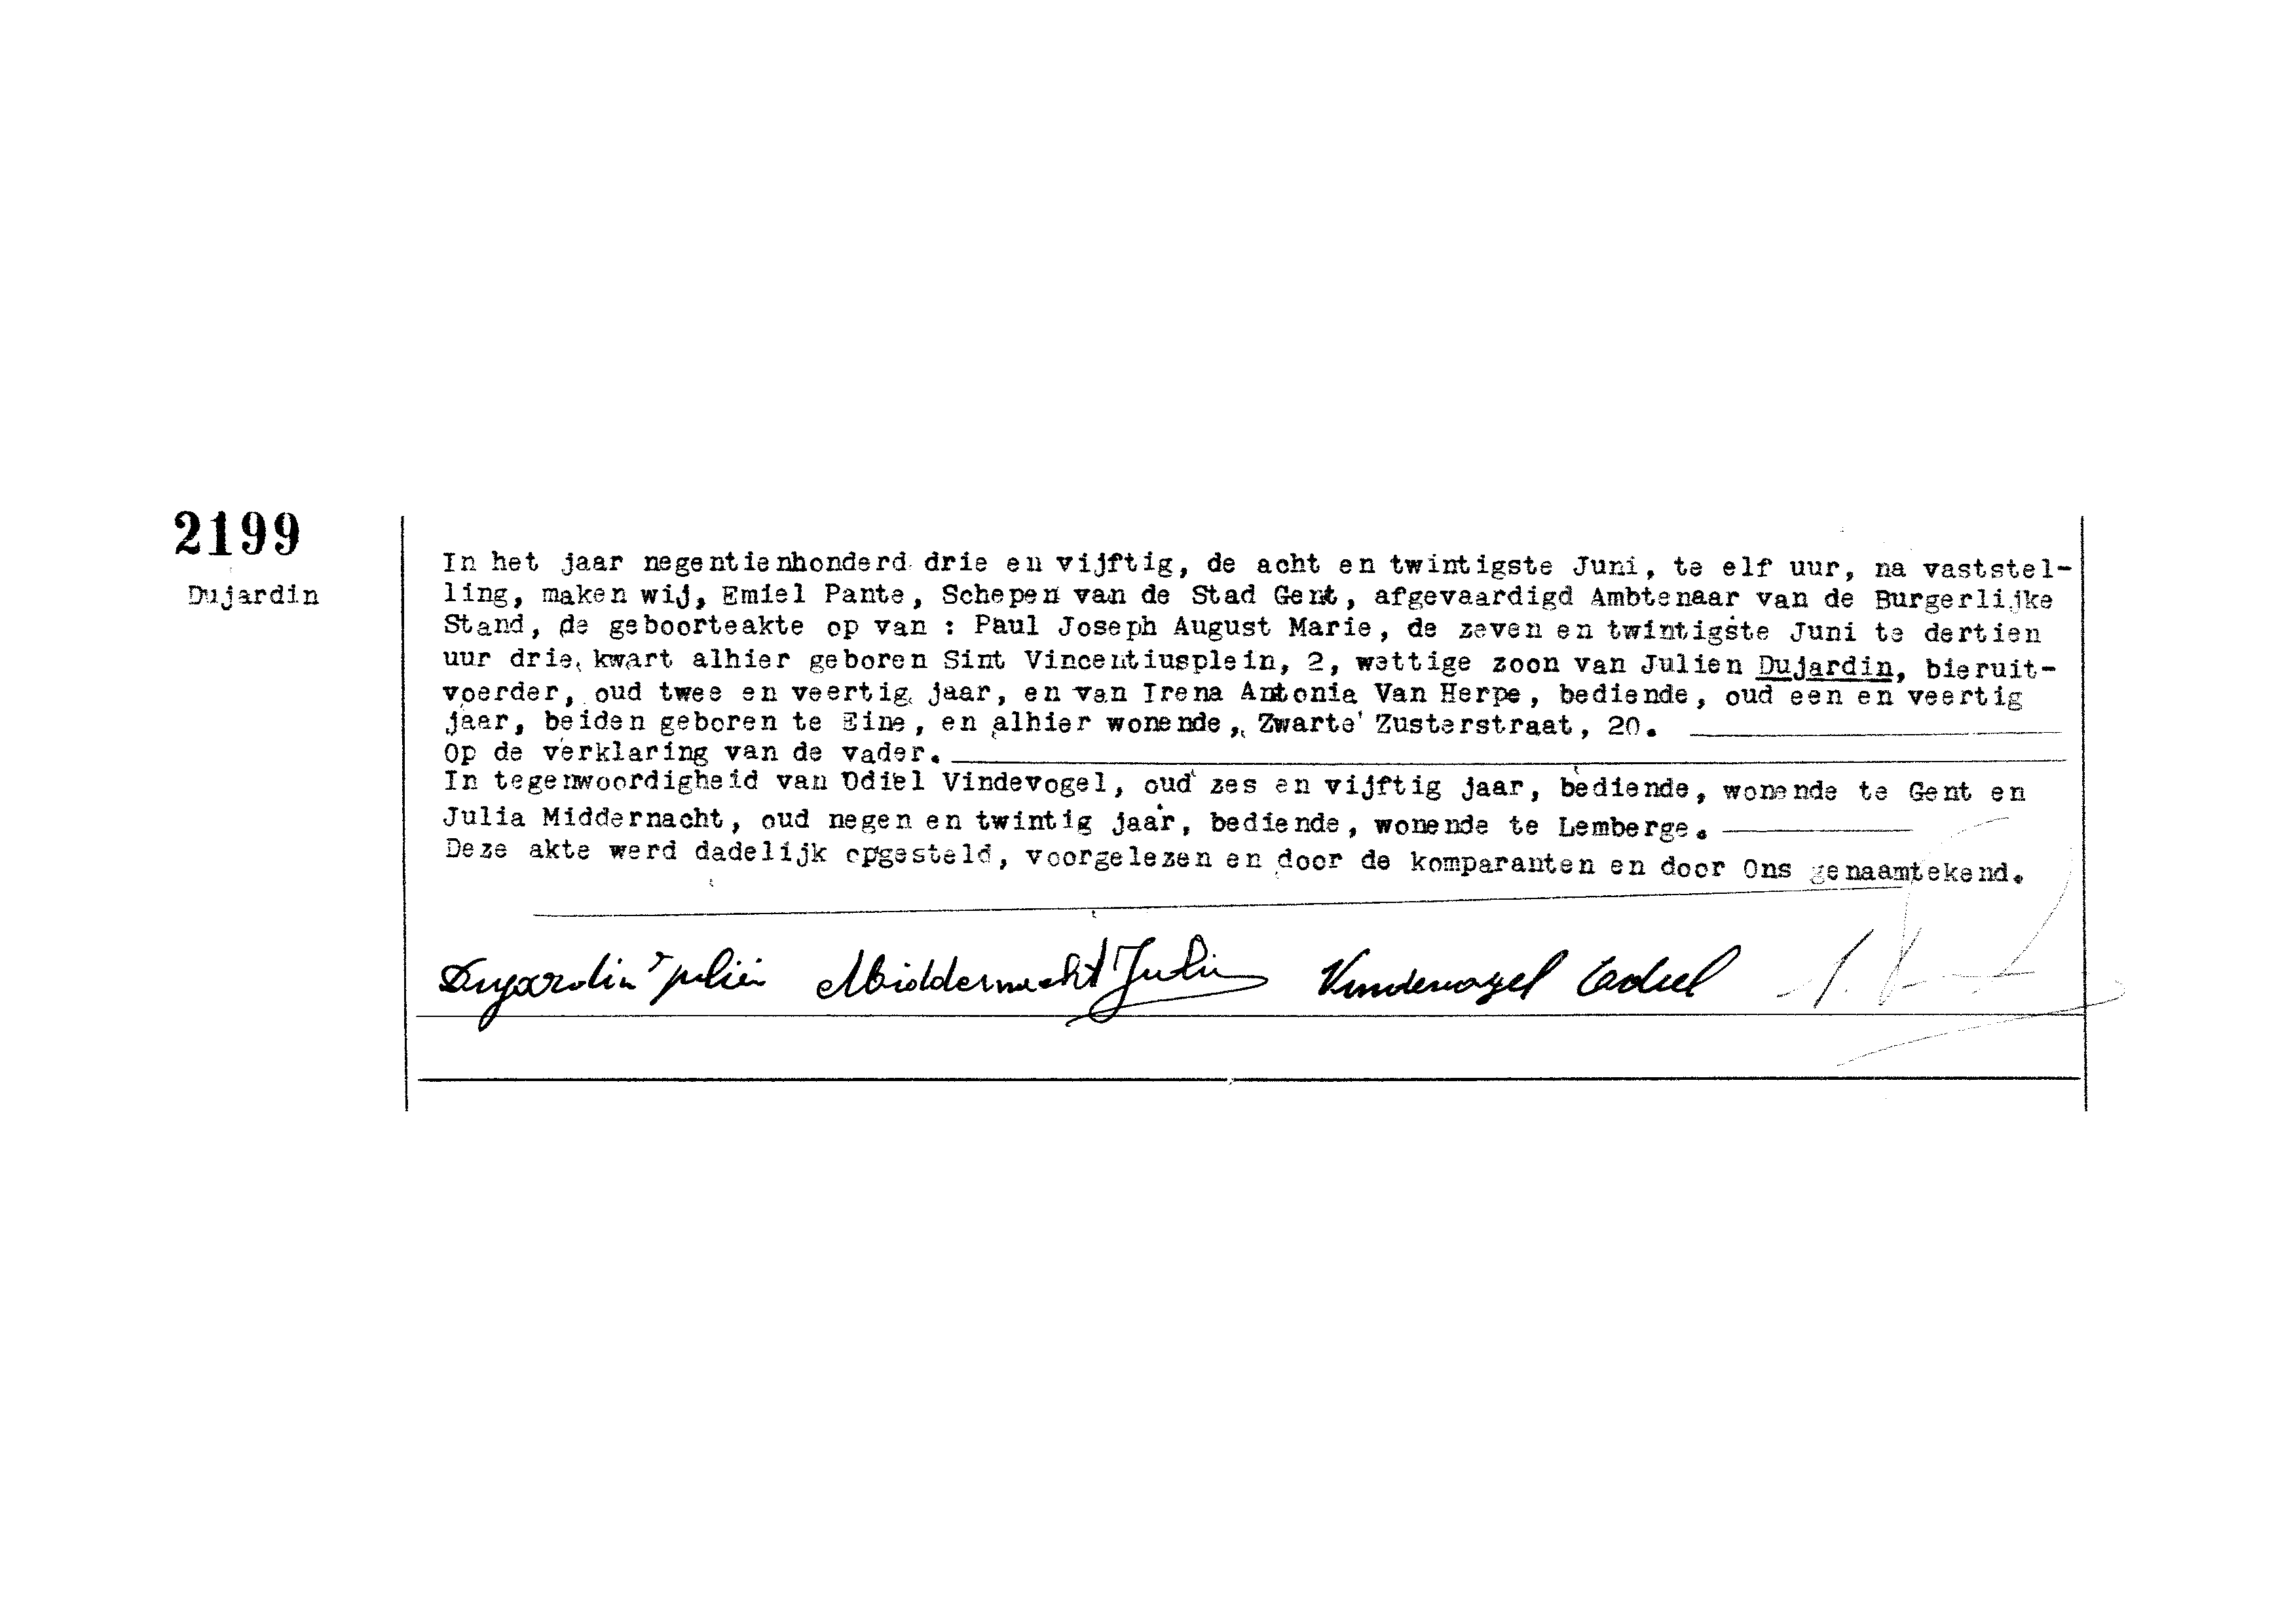 2199
Dujardin
In het jaar negentienhonderd drie en vijftig, de acht en twintigste Juni, te elf uur, na vaststel-
ling, maken wij, Emiel Pante, Schepen van de Stad Gent, afgevaardigd Ambtenaar van de Burgerlijke
Stand, de geboorteakte op van : Paul Joseph August Marie, de zeven en twintigste Juni te dertien
uur drie kwart alhier geboren Sint Vincentiusplein, 2, wettige zoon van Julien Dujardin, bieruit-
voerder, oud twee en veertig jaar, en van Irena Antonia Van Herpe, bediende, oud een en veertig
jaar, beiden geboren te Eine, en alhier wonende, Zwarte Zusterstraat, 20.
Op de verklaring van de vader.
In tegenwoordigheid van Odiel Vindevogel, oud zes en vijftig jaar, bediende, wonende te Gent en
Julia Middernacht, oud negen en twintig jaar, bediende, wonende te Lemberge.
Deze akte werd dadelijk opgesteld, voorgelezen en door de komparanten en door Ons genaamtekend.
Dujardin Julien Middernacht Julia Vindevogel Odiel